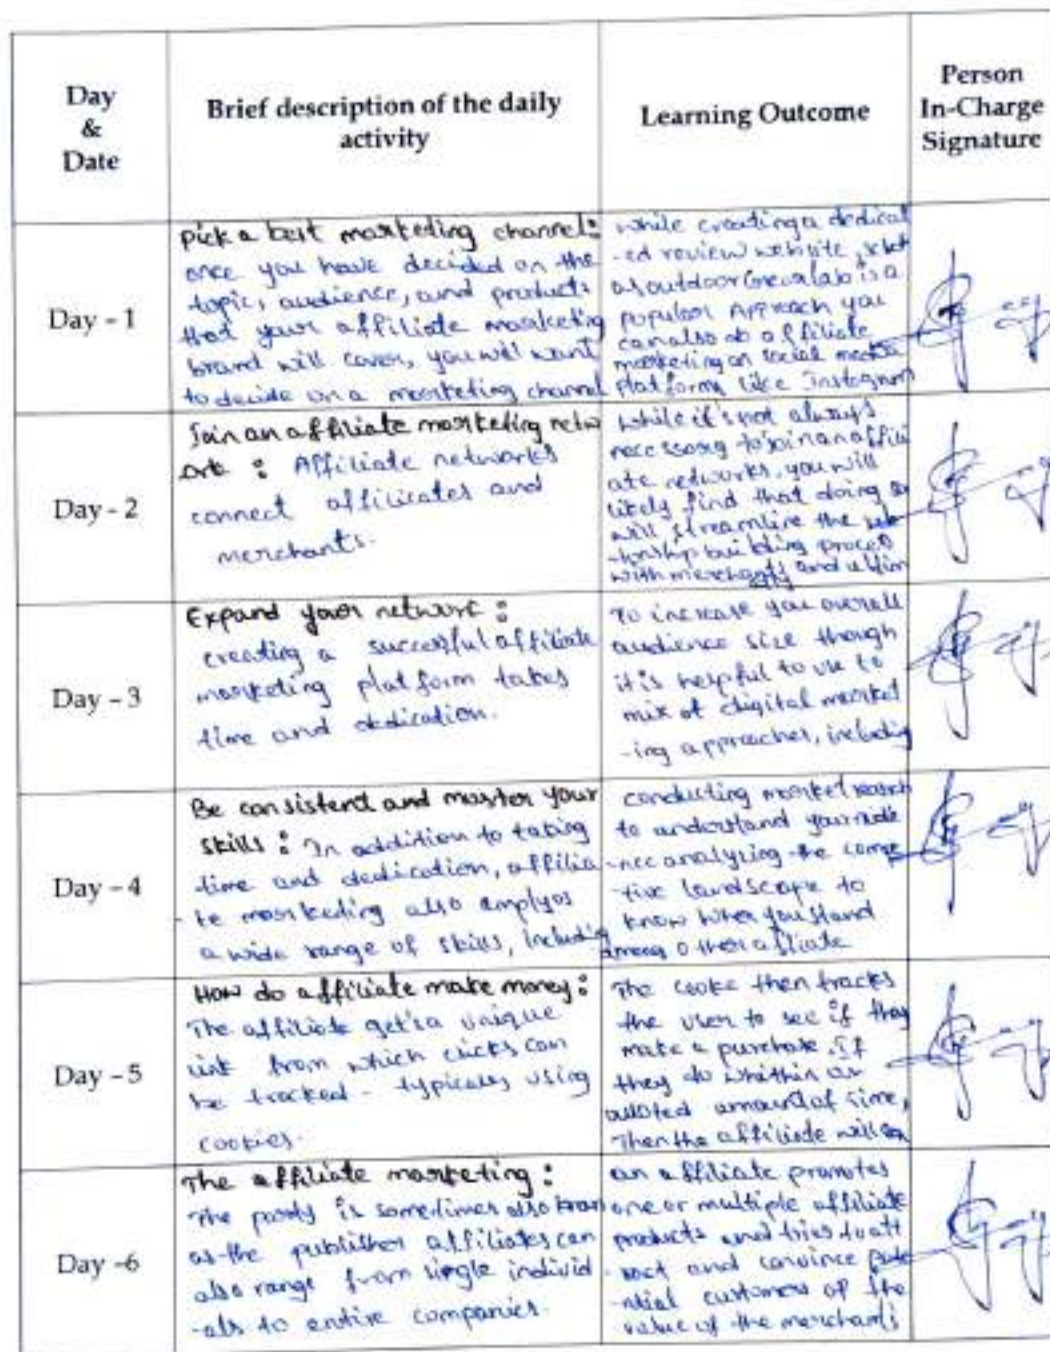 Day
&
Date
Brief description of the daily
activity
Learning Outcome
Person
In-Charge
Signature
Day - 1
Pick a best marketing channel:
once you have decided on the
topic, audience, and products
that your affiliate marketing
brand will cover, you will want
to decide on a marketing channel
while creating a dedicat
-ed review website,
as outdoor is a
popular Approach you
can also do affiliate
marketing on social media
platforms like Instagram
Day - 2
Join an affiliate marketing netw
ork : Affiliate networks
connect affiliates and
merchants.
while it's not always
necessary to join an affili
ate networks, you will
likely find that doing so
will streamline the
-tionship building process
with merchants and
Day - 3
Expand your network :
creating a successful affiliate
marketing platform takes
time and dedication.
To increase you overall
audience size though
it is helpful to use to
mix of digital market
-ing approaches, including
Day - 4
Be consistent and master your
skills : In addition to taking
time and dedication, affilia
- te marketing also employs
a wide range of skills, including
conducting market
to understand your
-nce analyzing the compe
-tive landscape to
know when you stand
among other affliate
Day - 5
How do affiliate make money :
The affiliate get's a unique
link from which clicks can
be tracked - typicales using
cookies.
The cooke then tracks
the user to see if they
make a purchase. If
they do whithin an
alloted amount of time,
Then the affiliate will
Day -6
The affiliate marketing :
The party is sometimes also
as the publisher affiliates can
also range from single individ
-als to entire companies.
an affiliate promotes
one or multiple affiliate
products and tries to att
- ract and convince pote
-ntial customers of the
value of the merchants